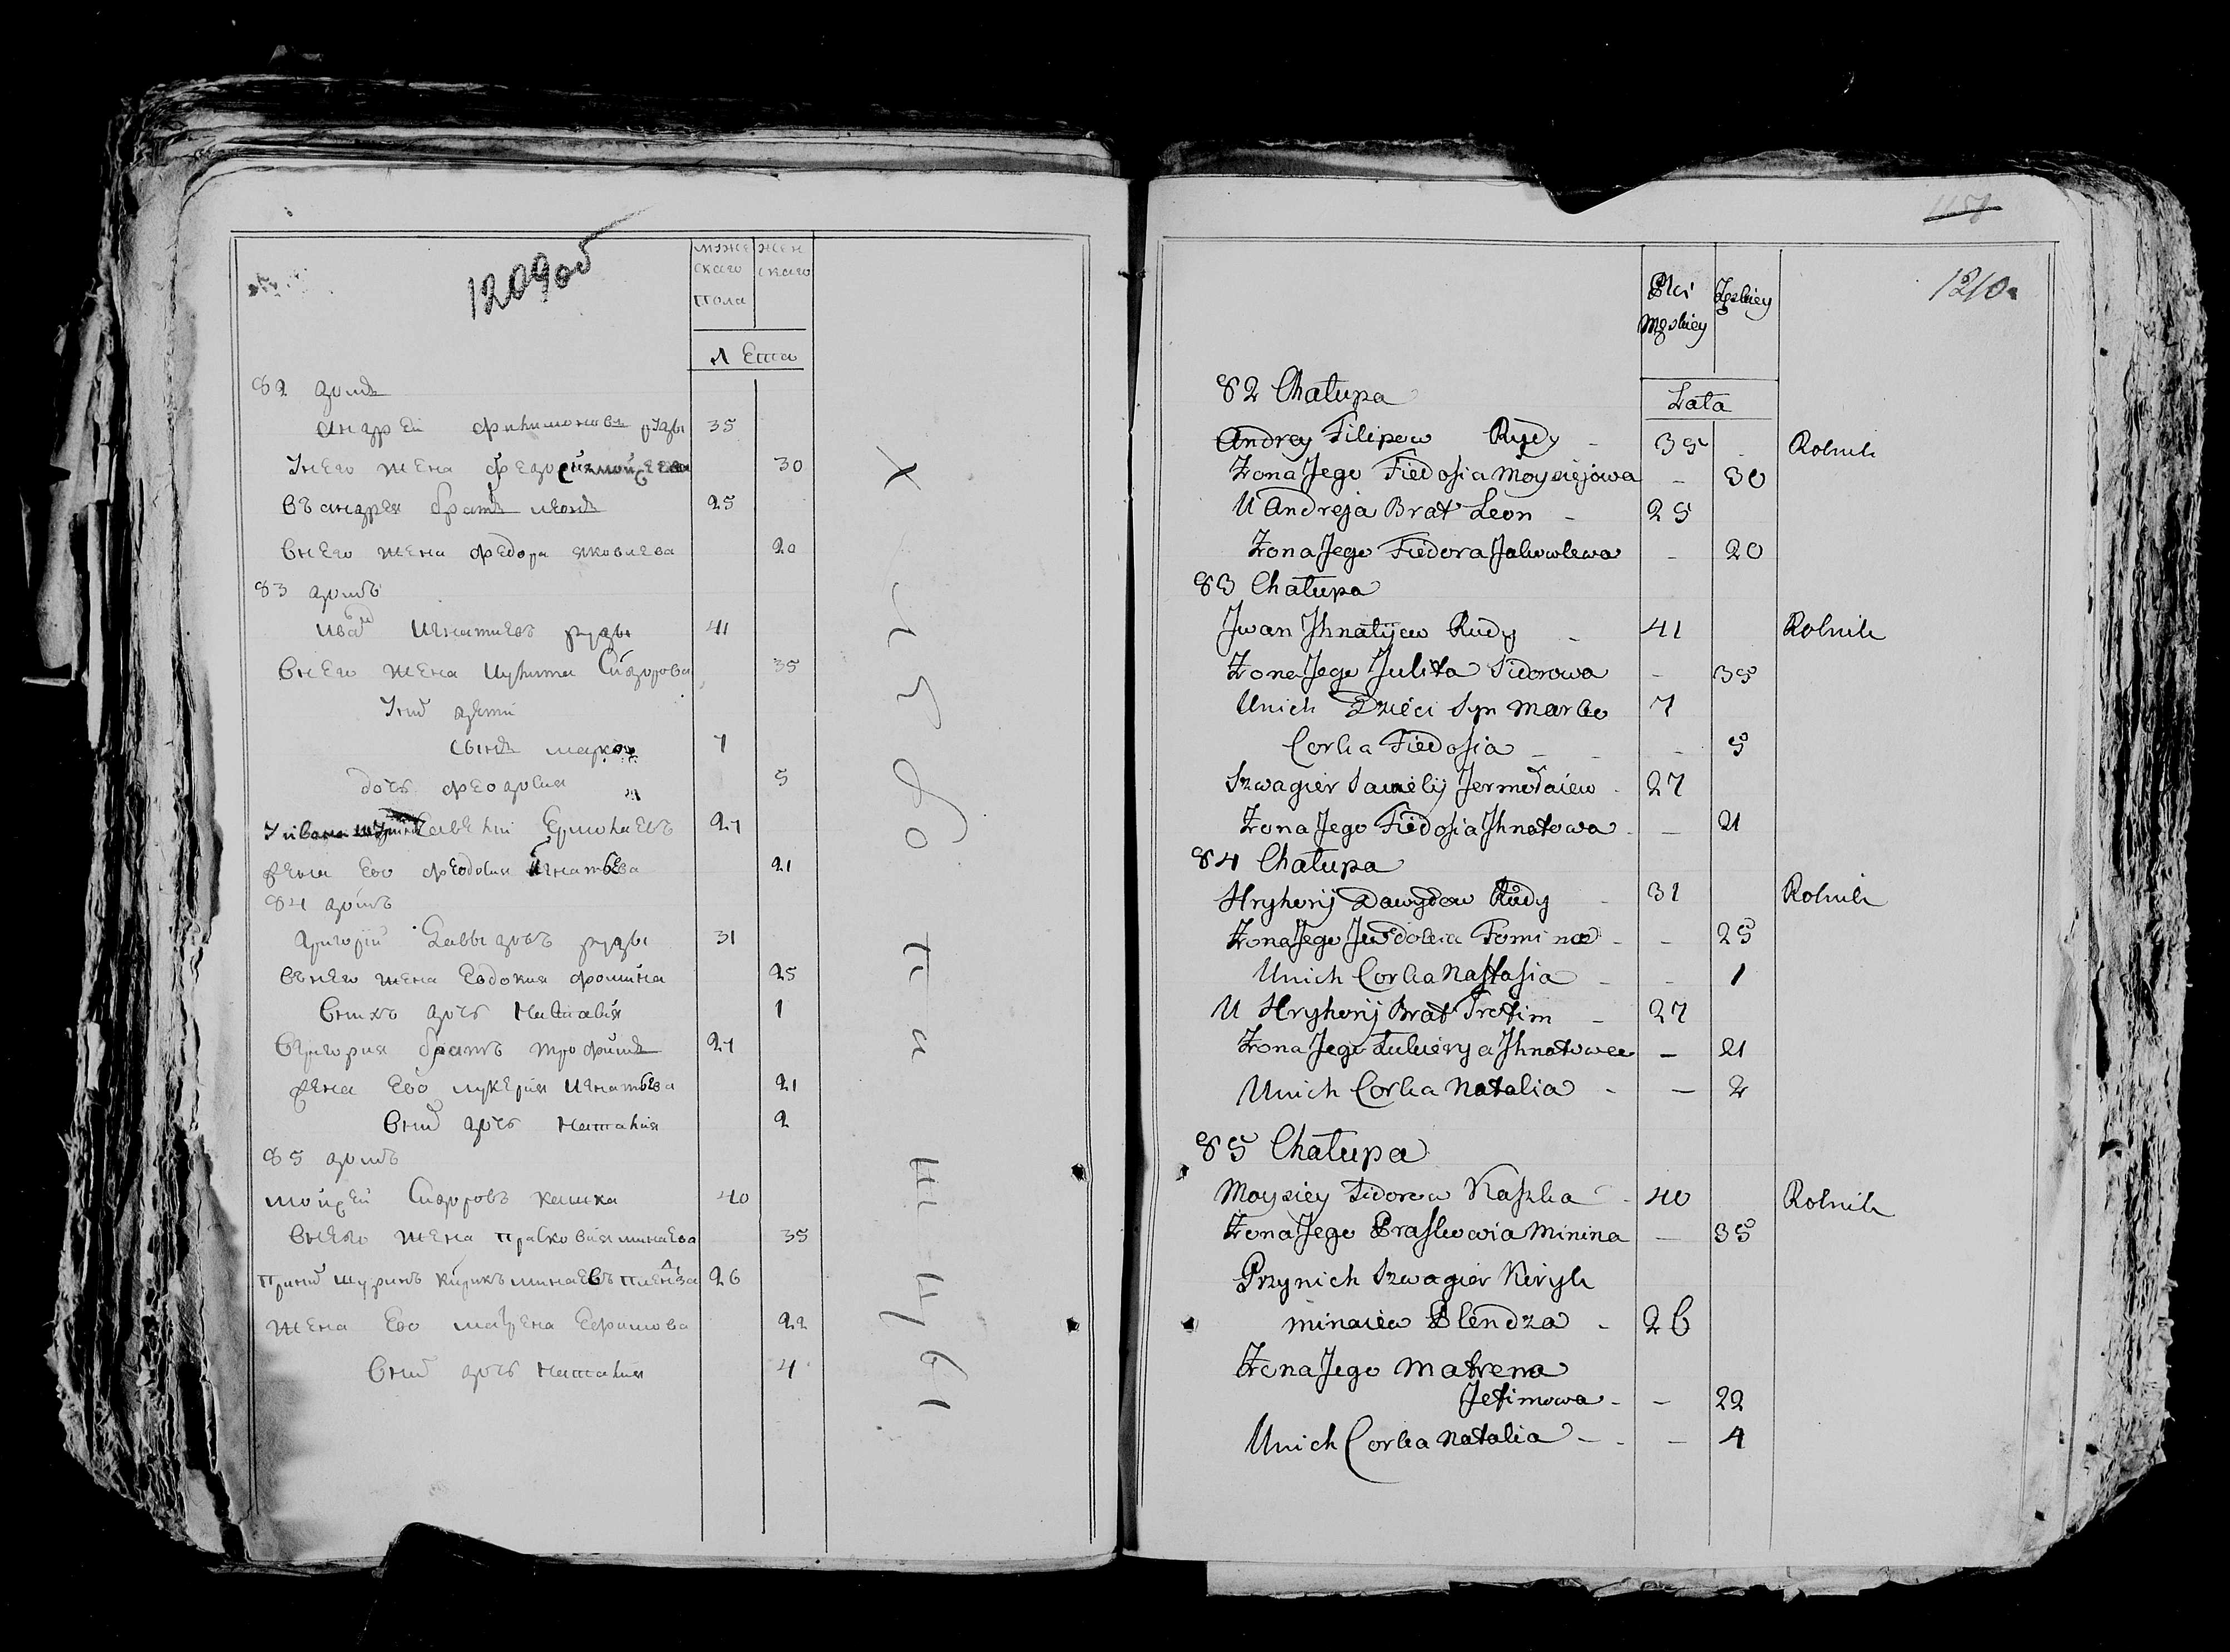 1209об
муже
скаго
пола
жен
скаго
Лета
82 домъ
Андрей Филимоновъ руды 35
Унего жена Федосия Мойсеева 30
Въ андрея братъ леонъ 25
Внего жена федора яковлева 20
83 домъ
Иван Игнатиевъ руды 41
Внего жена Иулита Сидорова 35
Уних дети
сынъ марко 7
дочь феодосия 5
Савелий Ермолаевъ 27
жена Ево феодосия Игнатьева 21
84 домъ
Григорий Давыдовъ руды 31
Вънего жена Евдокия фомина 25
Внихъ дочь 1
Вгригория братъ трофимъ 27
жена Ево лукерия Игнатьева 21
Вних дочь наталия 2
85 домъ
мойсей Сидоровъ кашка 40
Внего жена прасковия минаева 35
При них шуринъ кирикъ минаевъ пленза 26
жена Ево матрена Ефимова 22
Вних дочь наталия 4
Хлебопашцы
1158
1210
Płci
Męskiey
Żeskiey
Lata
82 Chałupa
Andrey Filipow Rudy - 35 Rolnik
Żona Jego Fiedosia Moysiejowa - 30
U Andreja Brat Leon - 25
Żona Jego Fiedora Jakowlewa - 20
83 Chałupa
Jwan Jhnatijew Rudy - 41 Rolnik
Żona Jego Julita Sidorowa - 35
Unich Dzieci Syn Marko 7
Corka Fiedosia - - - 5
Szwagier Sawelij Jermołaiew - 27
Żona Jego Fiedosia Jhnatowa - - 21
84 Chałupa
Hryhorij Dawydow Rudy - 31 Rolnik
Żona Jego Jewdokia Fomina - - 25
Unich Corka Nastasia - - 1
U Hryhorij Brat Trofim - 27
Żona Jego Łukierya Jhnatowa - 21
Unich Corka Natalia - - 2
85 Chałupa
Moysiey Sidorow Kaszka - 40 Rolnik
Żona Jego Praskowia Minina - 35
Przynich Szwagier Kiryk
Minaiew Blendza - 26
Żona Jego Matrena
Jefimowa - - 22
Unich Corka Natalia - - - 4